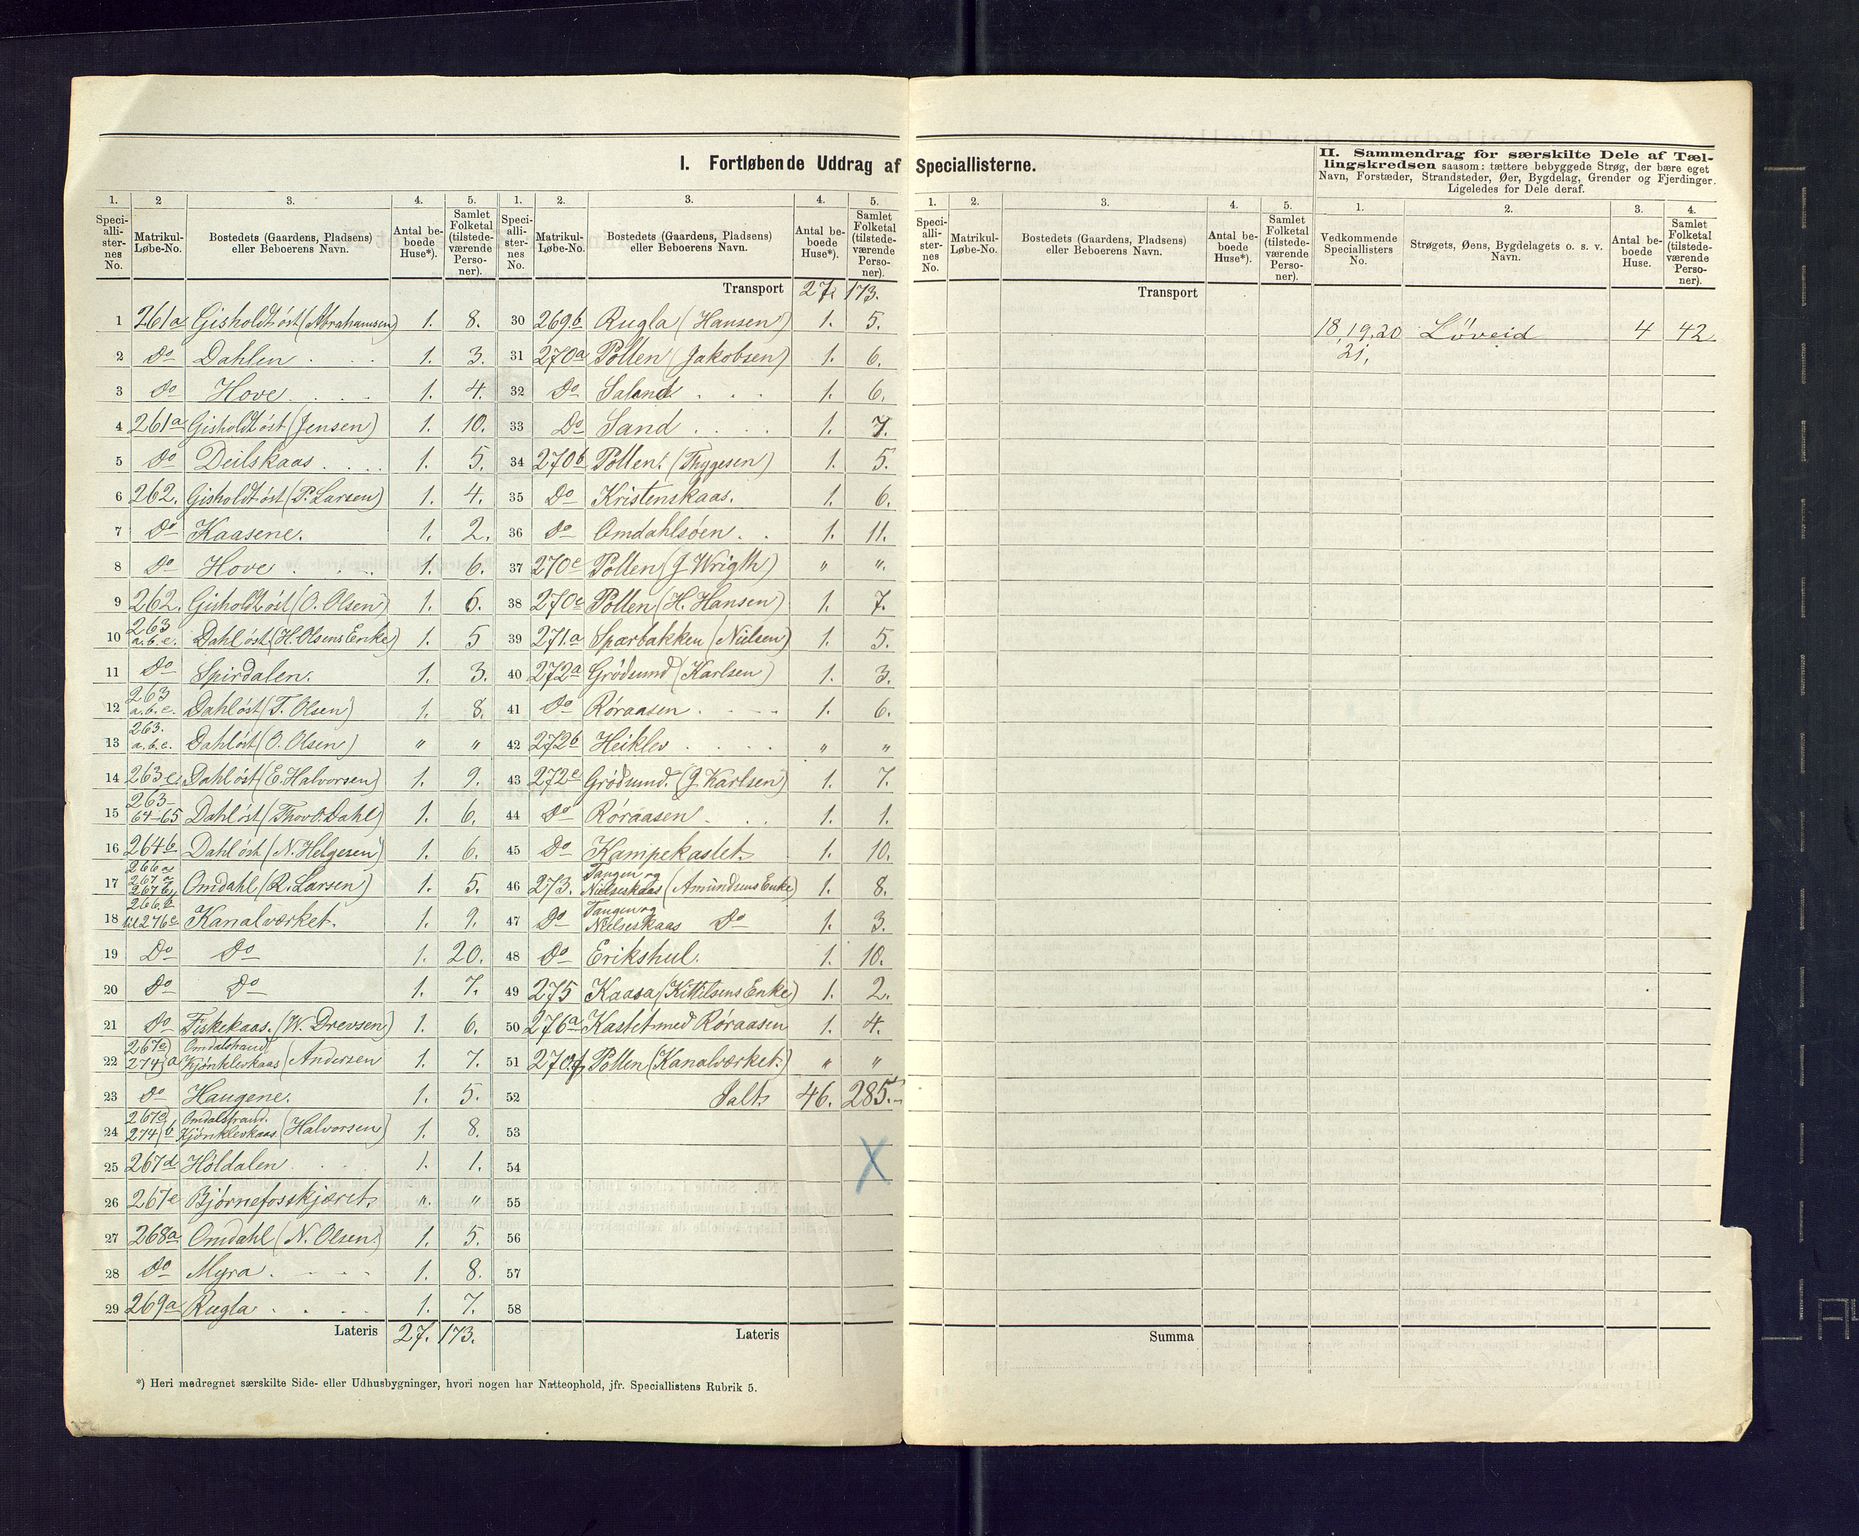 I. Fortløbende Uddrag af Speciallisterne.
II. Sammendrag for særskilte Dele af Tæl-
lingskredsen saasom: tættere bebyggede Strøg, der bære eget
Navn, Forstæder, Strandsteder, Øer, Bygdelag, Grender og Fjerdinger.
Ligeledes for Dele deraf.
1. 2 3. 4. 5.
Speciallister-nes No. Matrikul-Løbe-No. Bostedets (Gaardens, Pladsens) eller Beboerens Navn. Antal beboede Huse*). Samlet Folketal (tilstedeværende Personer).
1 261a Gisholdt øst (Abrahamsen) 1. 8.
2 Do Dahlen 1. 3.
3 Do Hove 1. 4.
4 261a Gisholdt øst (Jensen) 1. 10.
5 Do Deilskaas 1. 5.
6 262. Gisholdt øst (P. Larsen) 1. 4.
7 Do Kaasene. 1. 2.
8 Do Hove 1. 6.
9 262. Gisholdt øst (O. Olsen) 1. 6.
10 263 a.b.c. Dahl øst (H. Olsens Enke) 1. 5
11 Do Spirdalen. 1. 3.
12 263 a.b.c. Dahl øst (T. Olsen) 1. 8.
13 263. a.b.c. Dahl øst (O. Olsen) " "
14 263c Dahl øst (E. Halvorsen) 1. 9.
15 263-64-65 Dahl øst (Thov O. Dahl) 1. 6.
16 264b Dahl øst (N. Helgesen) 1. 6.
17 266a 267a 267b Omdahl (R. Larsen) 1. 5.
18 266.b til 276c Kanalværket. 1. 9.
19 Do Do 1. 20.
20 Do Do 1. 7.
21 Do Fiskekaas. (W. Drevsen) 1. 6.
22 267c) 274) a Omdalstrand. Kjønklevkaas (Andersen 1. 7.
23 Do Haugene. 1. 5.
24 267c) 274) b Omdalstrand. Kjønklevkaas (Halvorsen) 1. 8.
25 267d Höldalen 1. 1.
26 267e Bjørnefosskjæret. " "
27 268a Omdahl (N. Olsen) 1. 5.
28 Do Myra 1. 8.
29 269a Rugla 1. 7.
Lateris 27. 173.
1. 2. 3. 4. 5.
Speciallister-nes No. Matrikul-Løbe-No. Bostedets (Gaardens, Pladsens) eller Beboerens Navn. Antal beboede Huse*). Samlet Folketal (tilstedeværende Personer).
Transport 27. 173.
30 269b Rugla (Hansen) 1. 5.
31 270a Pollen (Jakobsen) 1. 6.
32 Do Saland 1. 6.
33 Do Sand 1. 7.
34 270b Pollen. (Thygesen) 1. 5.
35 Do Kristenskaas. 1. 6.
36 Do Omdahlsøen 1. 11.
37 270c Pollen (J Wrigth) " "
38 270e Pollen (H. Hansen) 1. 7.
39 271.a Sparbakken (Nielsen) 1. 5.
40 272a Grødsund (Karlsen) 1. 3.
41 Do Røraasen 1. 6.
42 272b Heiklev " "
43 272c Grødsund. (J. Karlsen) 1. 7.
44 Do Røraasen 1. 1.
45 Do Kampekastet. 1. 10.
46 273. Tangen og Nielseskaas (Amundsens Enke) 1. 8.
47 Do Tangen og Nielseskaas Do 1. 3.
48 Do Erikshul. 1. 10.
49 275 Kaasa (Kittilsens Enke) 1. 2.
50 276a Kastet med Røraasen 1. 4.
51 270f Pollen (Kanalværket.) " "
52 Ialt. 46. 285.
53
54
55
56
57
58
Lateris
*) Heri medregnet særskilte Side- eller Udhusbygninger, hvori nogen har Natteophold, jfr. Speciallistens Rubrik 5.
1. 2. 3. 4. 5.
Speciallister-nes No. Matrikul-Løbe-No. Bostedets (Gaardens, Pladsens) eller Beboerens Navn. Antal beboede Huse*). Samlet Folketal (tilstedeværende Personer).
Transport
Summa
1. 2. 3. 4.
Vedkommende Speciallisters No. Strøgets, Øens, Bygdelagets o. s. v. Navn. Antal beboede Huse. Samlet Folketal (tilstedeværende Personer).
18, 19, 20 Løveid 4 42.
21,